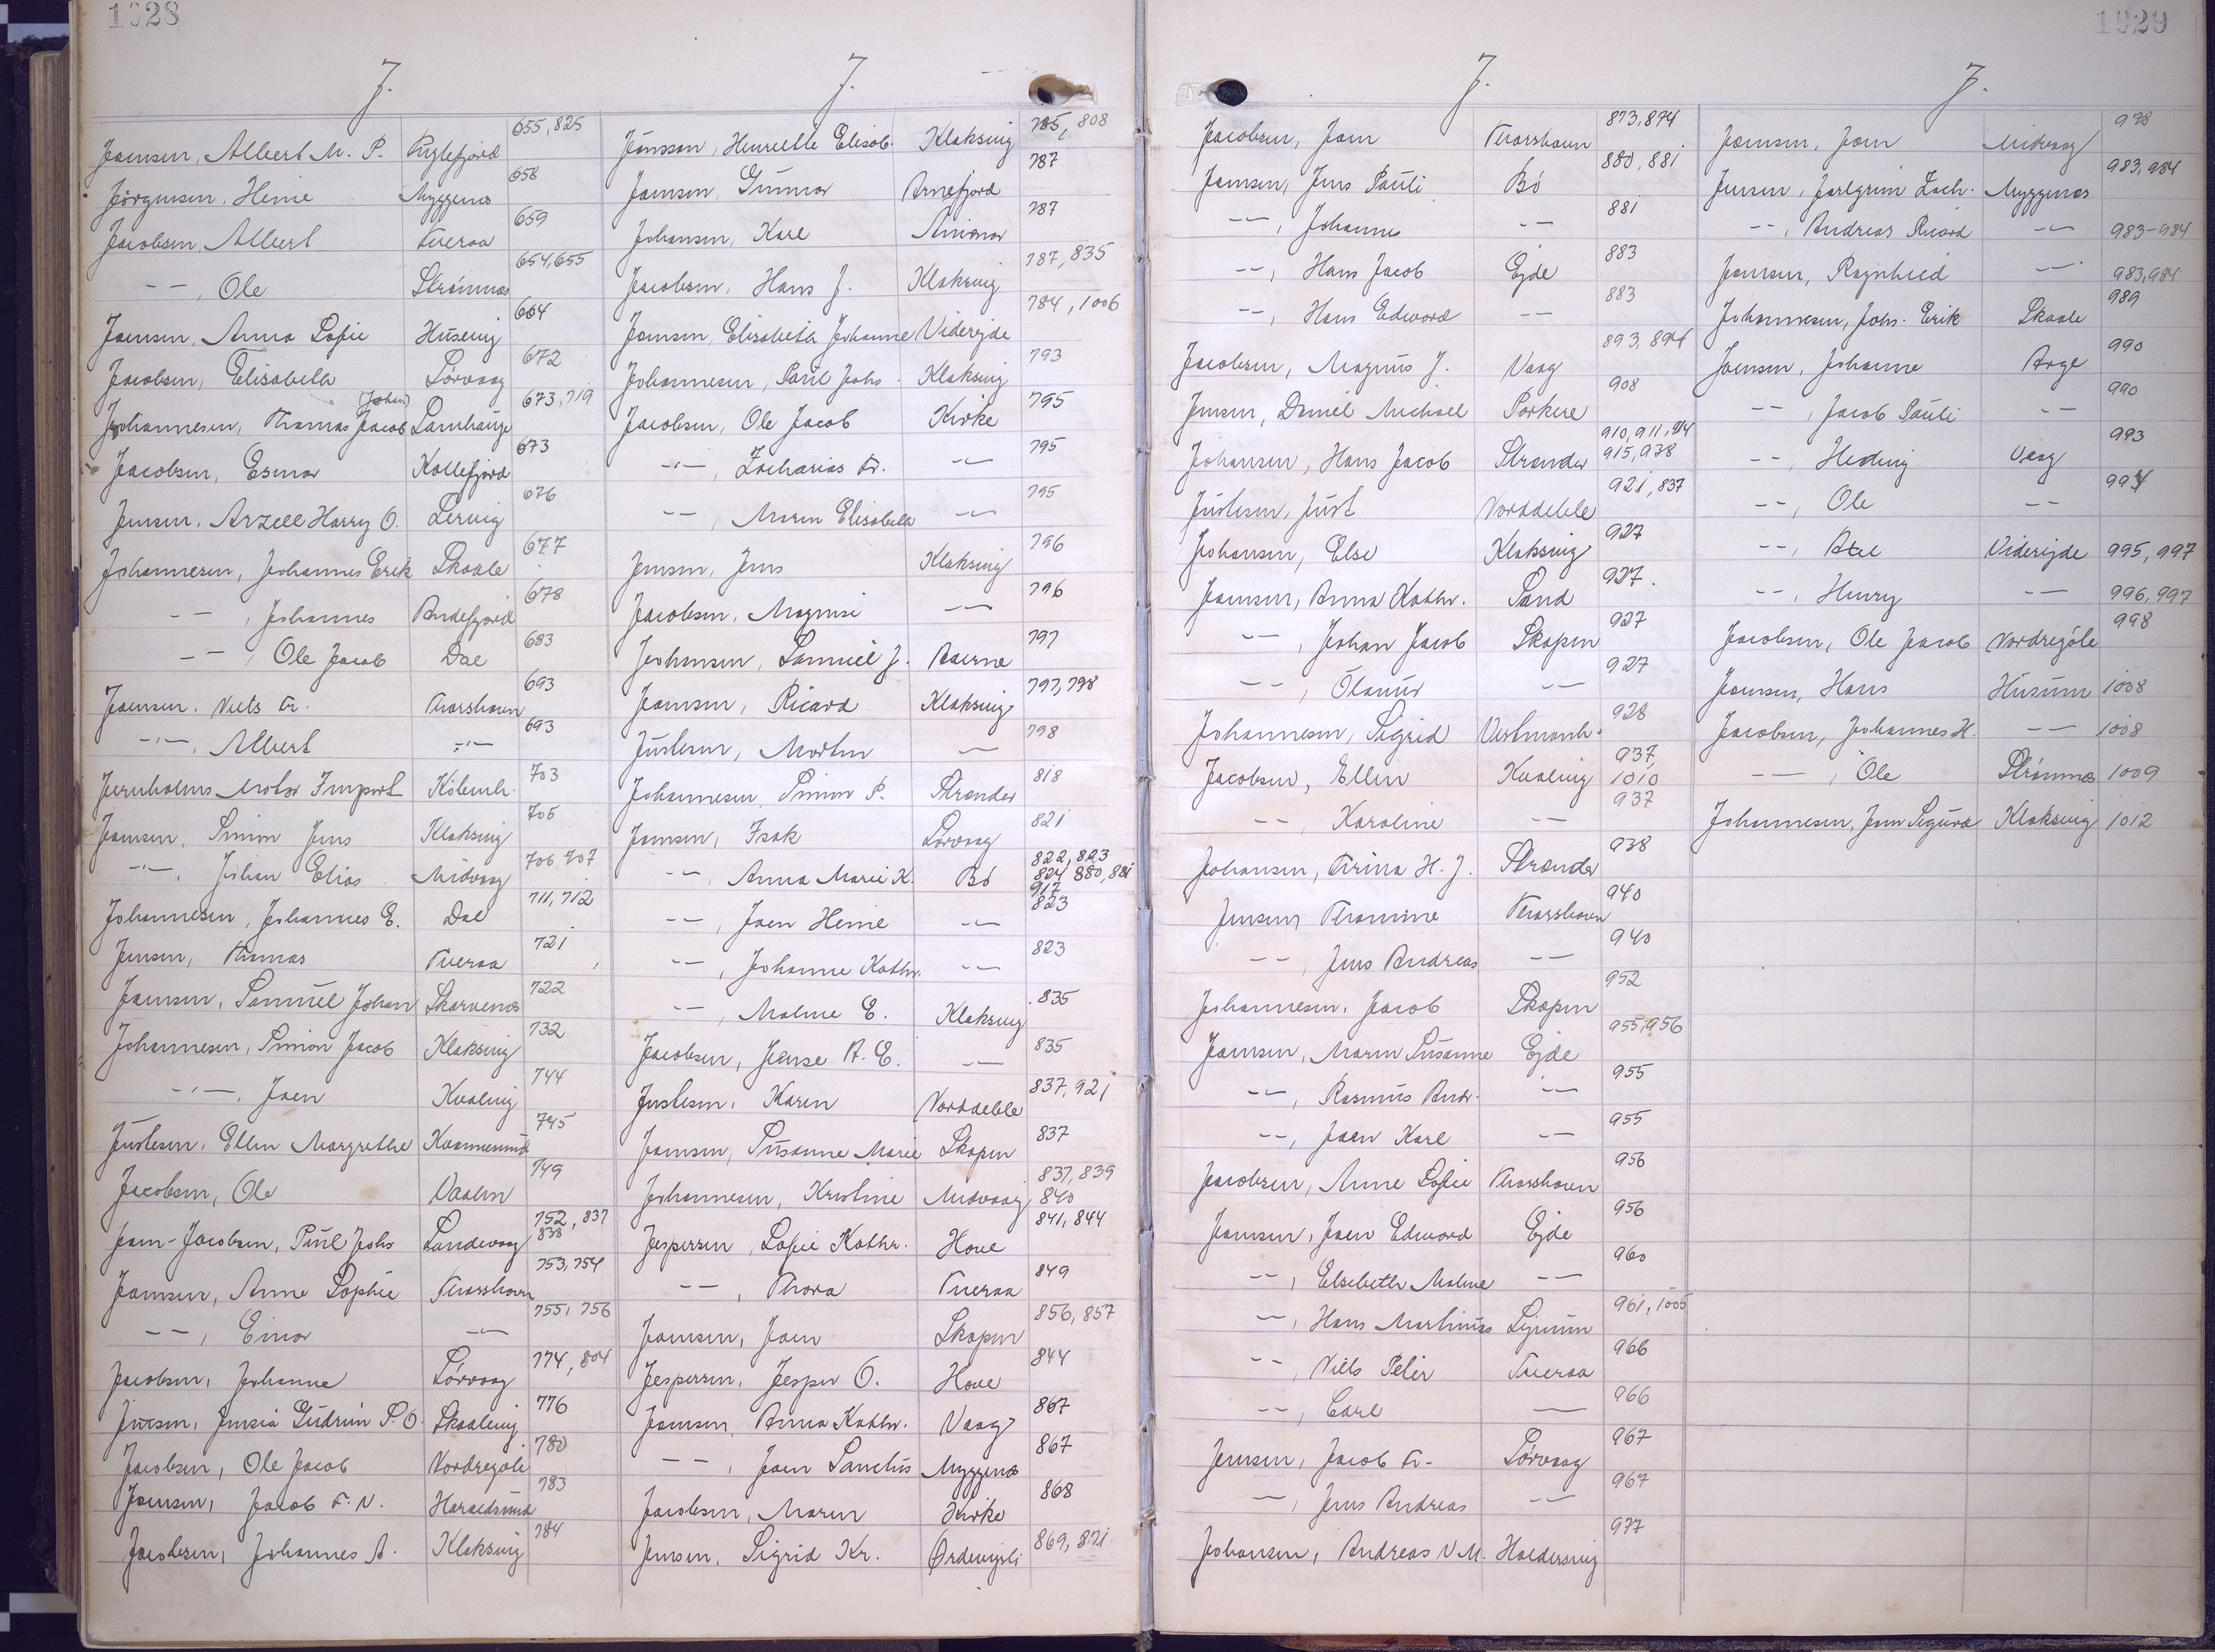 1028
J.
Joensen, Albert M. P. Fuglefjord 655, 825
Jørgensen, Heine Myggenæs 658
Jacobsen, Albert Tveraa 659
-"-, Ole Strømnæs 654, 655
Joensen, Anna Sofie Husevig 664
Jacobsen, Elisabeth Sørvaag 672
Johannesen, Thomas Jacob (Johan) Lamhauge 673, 719
Jacobsen, Esmar Kollefjord 673
Jensen, Arzell Harry O. Lervig 676
Johannesen, Johannes Erik Skaale 677
-"-, Johannes Andefjord 678
-"-, Ole Jacob Dal 683
Joensen, Niels Fr. Thorshavn 693
-"-, Albert -"- 693
Jernholms Motor Import Københ. 703
Joensen, Simon Jens Klaksvig 705
-"-, Johan Elias Midvaag 706 707
Johannesen, Johannes E. Dal 711, 712
Jensen, Thomas Tveraa 721
Joensen, Samuel Johan Skarvenæs 722
Johannesen, Simon Jacob Klaksvig 732
-"-, Joen Kvalvig 744
Justesen, Ellen Margrethe Kvannesund 745
Jacobsen, Ole Vaalen 749
Joen-Jacobsen, Paul Johs Sandevaag 752, 837 838
Joensen, Anne Sophie Thorshavn 753, 754
-"-, Einar -"- 755, 756
Jacobsen, Johanne Sørvaag 774, 804
Joensen, Jensia Gudrun S. O. Skaalevig 776
Jacobsen, Ole Jacob Nordregøte 780
Joensen, Jacob F. N. Haraldsund 783
Jacobsen, Johannes A. Klaksvig 784
J.
Jónsson, Henriette Elisab. Klaksvig 785, 808
Joensen, Gunnar Arnefjord 787
Johansen, Karl Amionæs 787
Jacobsen, Hans J. Klaksvig 787, 835
Joensen, Elisabeth Johanne Viderejde 784, 1006
Johannesen, Paul Johs. Klaksvig 793
Jacobsen, Ole Jacob Kirke 795
-"-, Zacharias Fr. -"- 795
-"-, Maren Elisabeth -"- 795
Jensen, Jens Klaksvig 796
Jacobsen, Magnus -"- 796
Johansen, Samuel J. Aaerne 797
Joensen, Ricard Klaksvig 797, 798
Justesen, Morten -"- 798
Johannesen, Simon P. Strænder 818
Joensen, Isak Sørvaag 821
-"-, Anna Marie K. Bø 822, 823 824 880, 881 917
-"-, Joen Heine -"- 823
-"-, Johanne Kathr. -"- 823
-"-, Malene E. Klaksvig 835
Jacobsen, Jense A. E. -"- 835
Justesen, Karen Norddeble 837, 921
Joensen, Susanne Marie Skopen 837
Johannesen, Kristine Midvaag 837, 839 840
Jespersen, Sofie Kathr. Hove 841, 844
-"-, Thora Tveraa 849
Joensen, Joen Skopen 856, 857
Jespersen, Jesper O. Hove 844
Joensen, Anna Kathr. Vaag 867
-"-, Joen Sanchus Myggenæs 867
Jacobsen, Maren Kirke 868
Jensen, Sigrid Kr. Ørdevigsli 869, 871
1029
J.
Jacobsen, Joen Thorshavn 873, 874
Joensen, Jens Pauli Bø 880, 881
-"-, Johanne -"- 881
-"-, Hans Jacob Ejde 883
-"-, Hans Edward -"- 883
Jacobsen, Magnus J. Vaag 893, 894
Jensen, Daniel Michael Porkere 908
Johansen, Hans Jacob Strænder 910, 911, 914 915, 938
Justesen, Just Norddeble 921, 837
Johansen, Else Klaksvig 927
Joensen, Anna Kathr. Sand 927.
-"-, Johan Jacob Skopen 927
-"-, Ólavur -"- 927
Johannesen, Sigrid Vestmanh. 928
Jacobsen, Ellen Kvalvig 937, 1010
-"-, Karoline -"- 937
Johansen, Trina H. J. Strænder 938
Jensen, Thomine Thorshavn 940
-"-, Jens Andreas -"- 940
Johannesen, Jacob Skopen 952
Joensen, Maren Susanne Ejde 955, 956
-"-, Rasmus Andr. -"- 955
-"-, Joen Karl -"- 955
Jacobsen, Anne Sofie Thorshavn 956
Joensen, Joen Edward Ejde 956
-"-, Elsebeth Malene -"- 960
-"-, Hans Marthinus Ljimum 961, 1005
-"-, Niels Peter Tveraa 966
-"-, Carl -"- 966
Jensen, Jacob Fr. Sørvaag 967
-"-, Jens Andreas -"- 967
Johansen, Andreas V M. Haldersvig 977
J.
Joensen, Joen Midvaag 978
Jensen, Jorlgrim Zach. Myggenæs 983, 984
-"-, Andreas Ricard -"- 983-984
Joensen, Ragnhild -"- 983, 984
Johannesen, Johs. Erik Skaale 989
Joensen, Johanne Arge 990
-"-, Jacob Pauli -"- 990
-"-, Hedvig Vaag 993
-"-, Ole -"- 994
-"-, Axel Viderejde 995, 997
-"-, Henry -"- 996, 997
Jacobsen, Ole Jacob Nordregøte 998
Joensen, Hans Husum 1008
Jacobsen, Johannes H. -"- 1008
-"-, Ole Strømnæs 1009
Johannesen, Joen Sigurd Klaksvig 1012